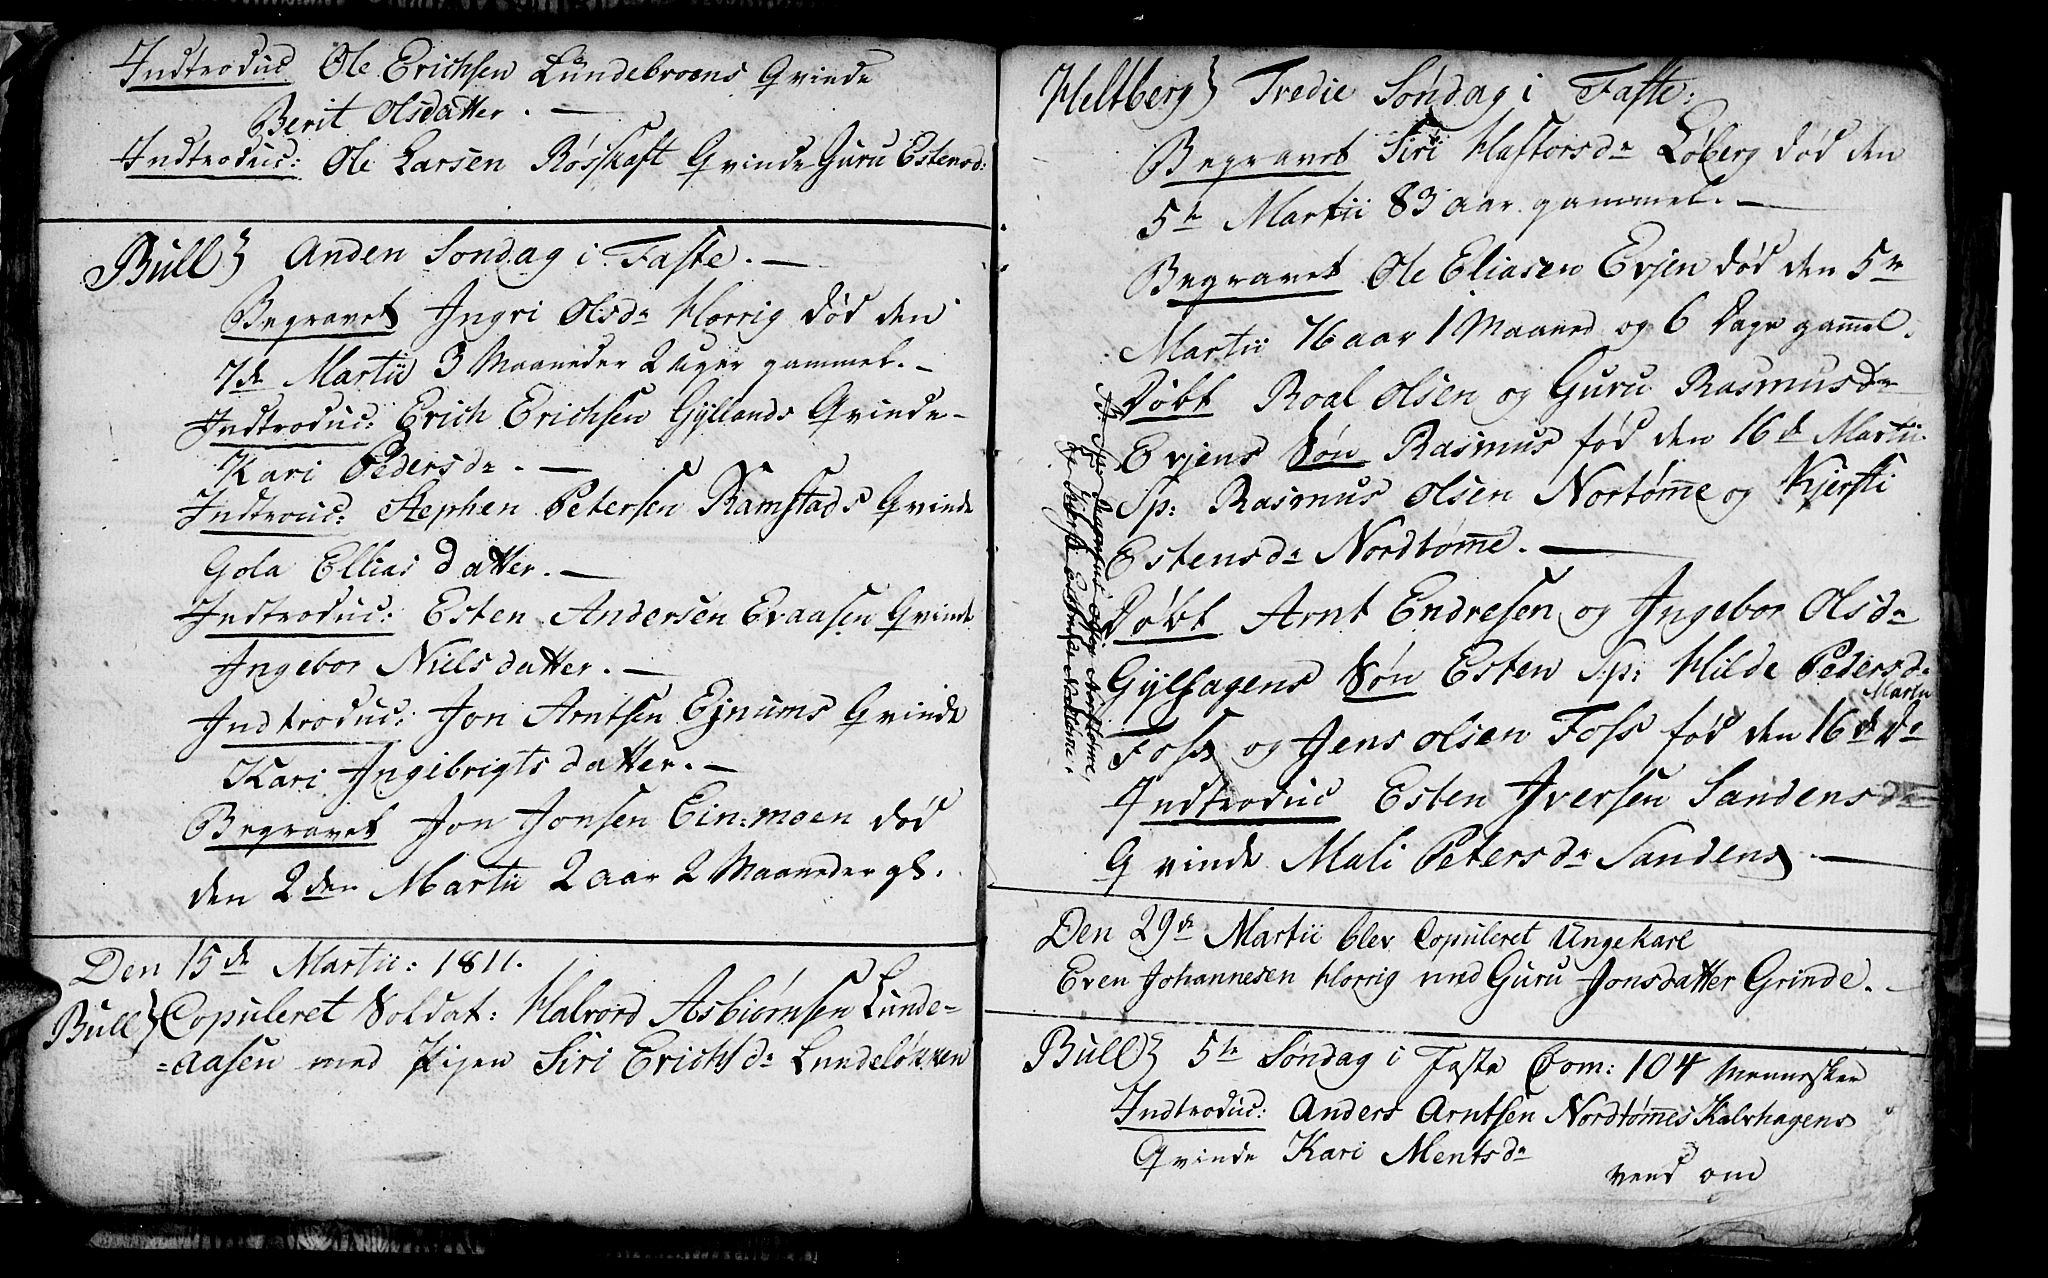 Indtroduc Ole Erichsen Lundebroens Qvinde
Berit Olsdatter. —
Indtroduc: Ole Larsen Røsshaft Qvinde Guru Estensd:
Bull} Anden Søndag i Faste. —
Begravet Ingri Olsdr Horrig død den
7de Martii 3 Maaneder 2 Uger gammel. —
Indtroduc: Erich Erichsen Gyllands Qvinde –
Kari Pedersdr. —
Indtrouc: Stephen Petersen Ramstads Qvinde
Gola Ellias datter. —
Indtroduc: Esten Andersen Evaasen Qvinde
Ingebor Nielsdatter. —
Indtroduc: Jon Arntsen Ejnums Qvinde
Kari Ingibrigts datter. —
Begravet Jon Jonsen Ein=moen død
den 2den Martii 2 aar 2 Maaneder gl.
Den 15de Martii: 1811.
Bull} Copuleret Soldat: Halvord Asbiørnsen Lunde=
=aasen med Pigen Siri Erichsdr Lundeløkken
Heltberg} Tredie Søndag i Faste:
Begravet Siri Hastorsdr Løberg død den
5te Martii 83 aar gammel. —
Begravet Ole Eliasen Evjen død den 5te
Martii 76 aar 1 Maaned og 6 Dage gamel.
Døbt Roal Olsen og Guru Rasmusdr
Evjens Søn Rasmus fød den 16de Martii
Sp: Rasmus Olsen Nortøme og Kjersti
Estensdr Nordtøme. —
Døbt Arnt Endresen og Ingebor Olsdr
Gylhagens Søn Esten Sp: Hilde Pedersdr
Foss og Jens Olsen Foss fød den 16de Dr
Martii
Indtroduc Esten Iversen Sandensdr
Qvinde Mali Petersdr Sandens. —
Den 29de Martii blev Copuleret Ungekarl
Even Johannesen Horrig med Guru Jonsdatter Grinde. —
Bull} 5te Søndag i Faste Com: 104 Mennesker
Indtroduc: Anders Arntsen Nordtømes Kalvhagens
Qvinde Kari Mentsdr
vend om
Rasmus Olsen Nortøme,
og Kiersti Estensdr Nortøme.